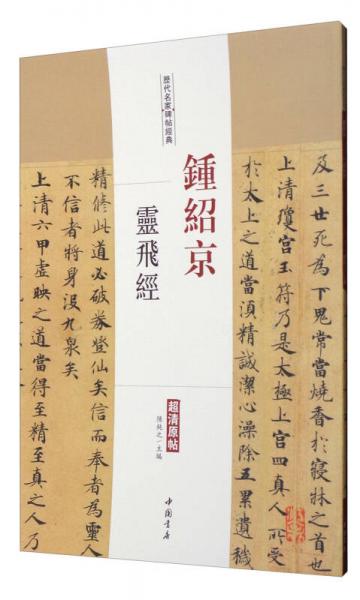 歷代名家碑帖經典
鍾紹京
靈飛經
超清原帖
陳純之 主編
中國書店
及三世死為下鬼常當燒香於寢牀之首也
上清瓊宮玉符乃是太極上宮四真人所受
於太上之道當須精誠潔心澡除五累遺穢
精修此道必破券登仙矣信而奉者為靈人
不信者將身沒九泉矣
上清六甲虛映之道當得至精至真之人乃